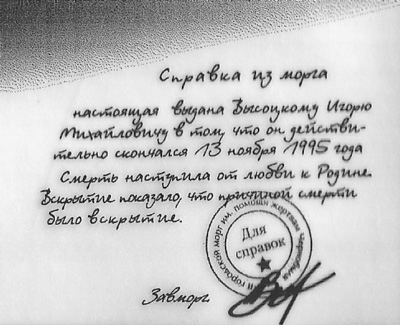 Справка из морга
настоящая выдана Высоцкому Игорю
Михайловичу в том, что он действи-
тельно скончался 13 ноября 1995 года
Смерть наступила от любви к Родине.
Вскрытие показало, что причиной смерти
было вскрытие.
городской морг им. помощи жертвам
Для
справок
Завморг